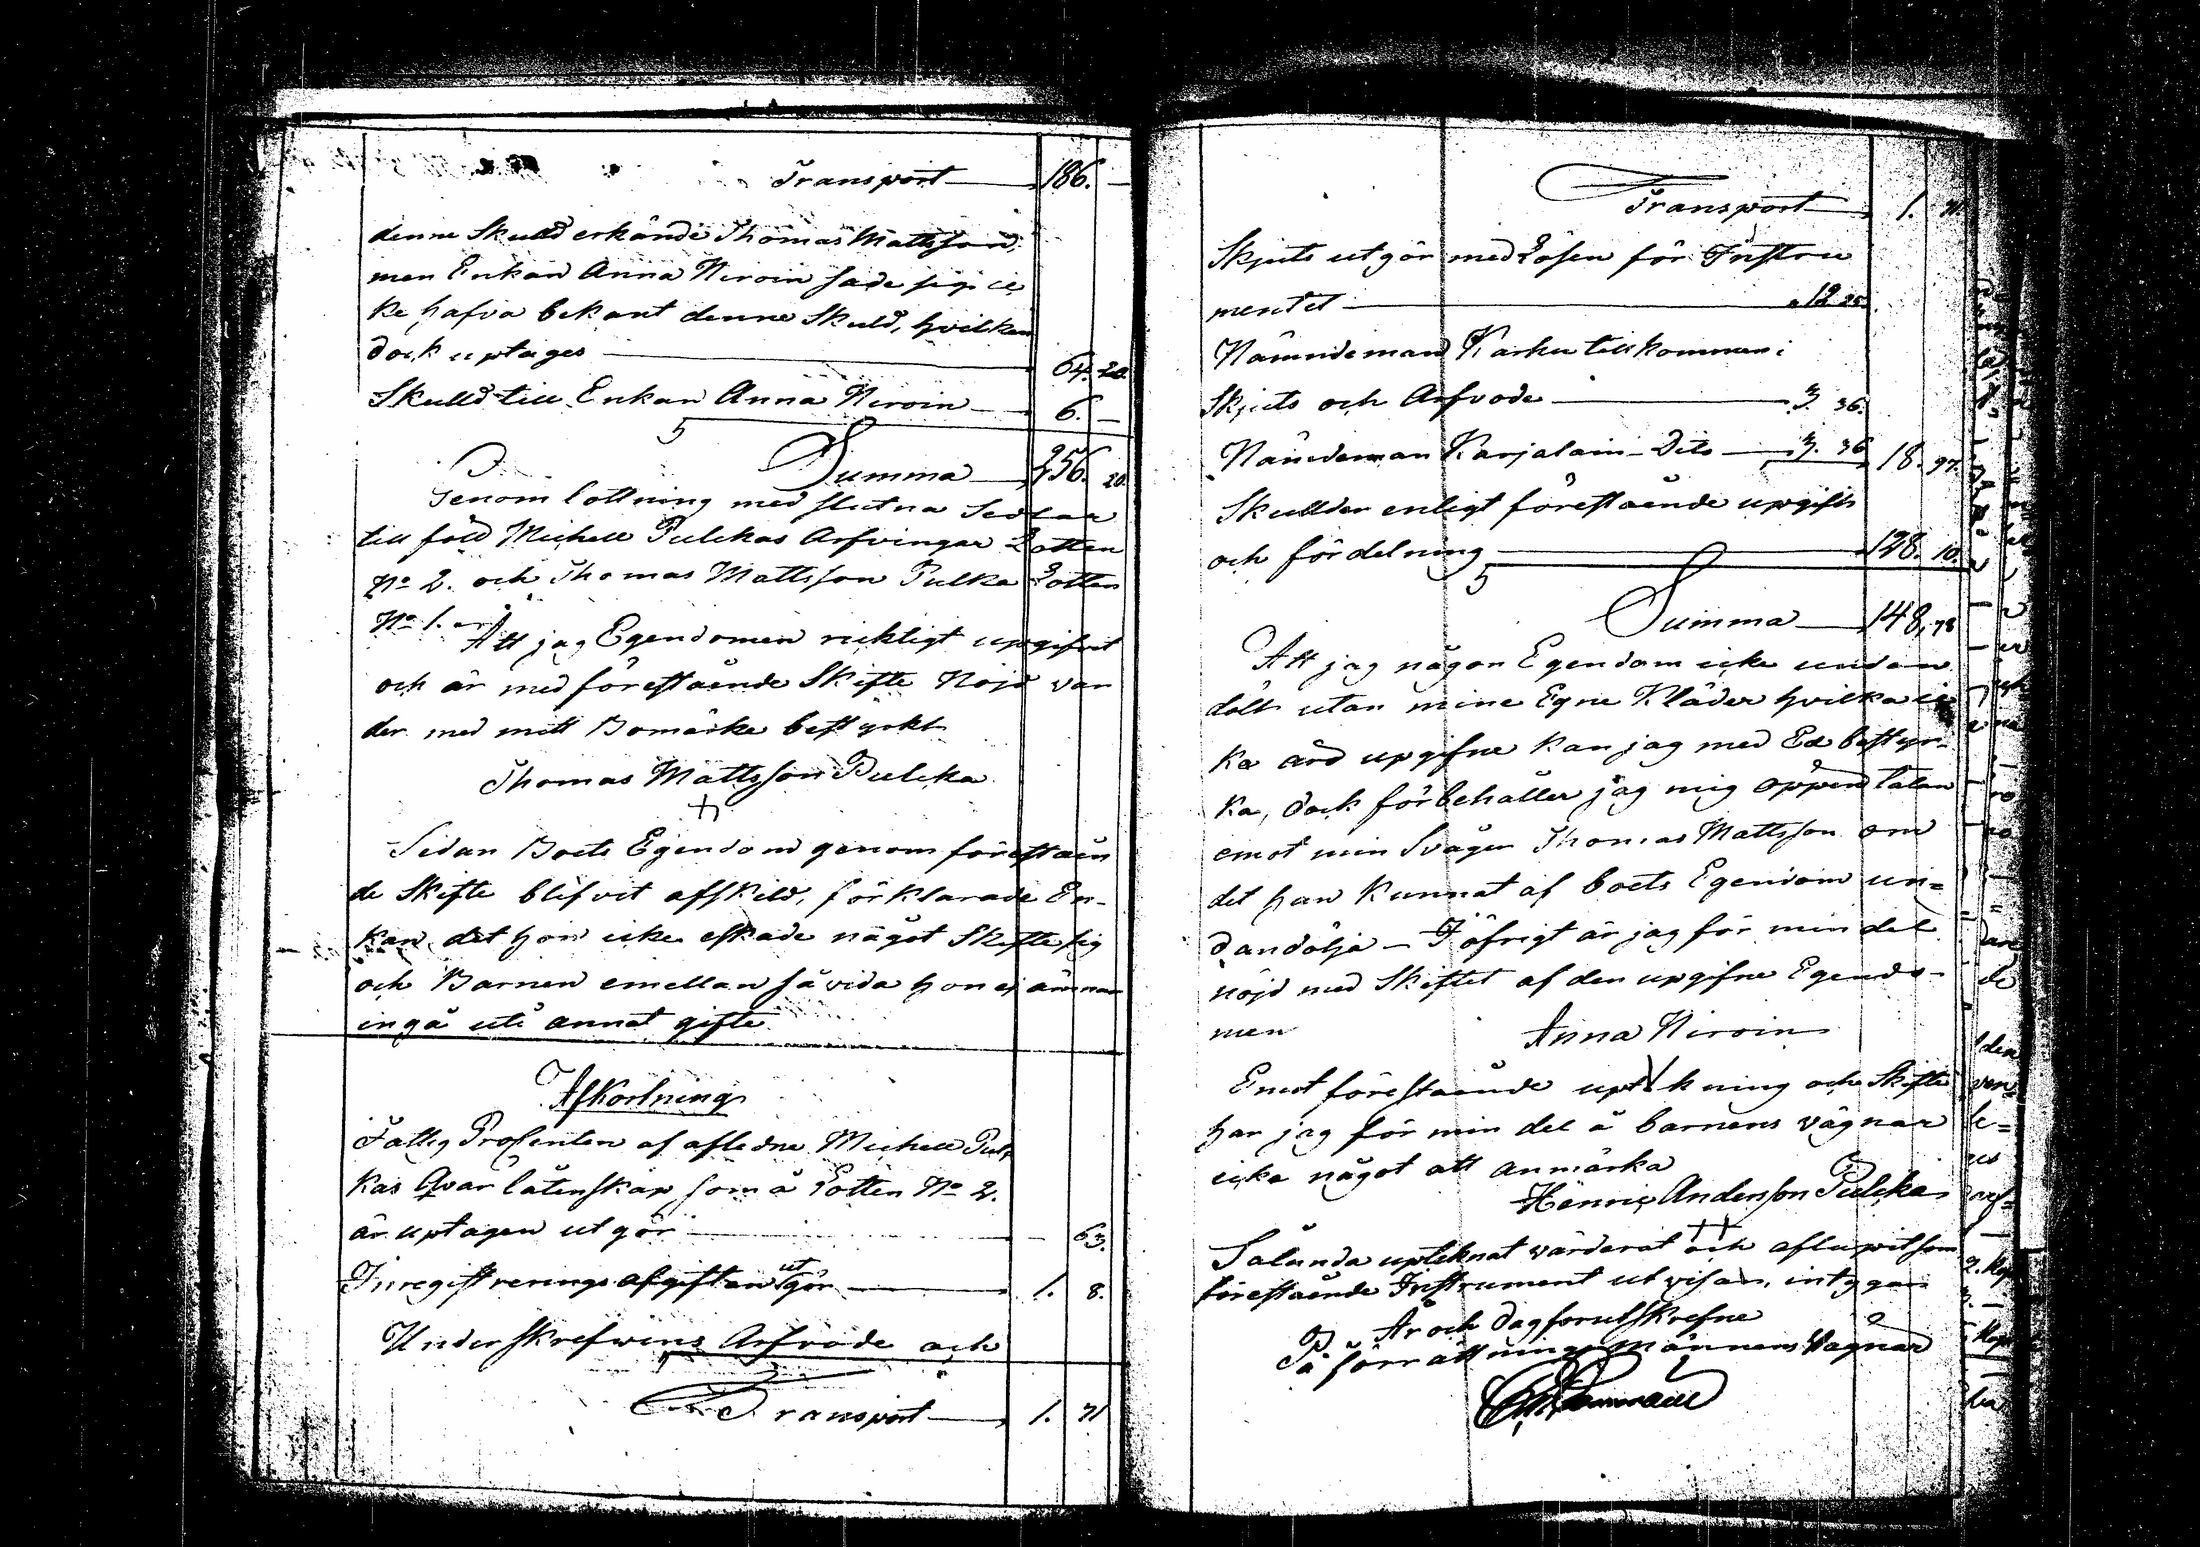 Transport 186. —
denne Skulld erkände Thomas Mattsson,
men Enkan Anna Niroin sade sig ic
ke hafva bekant denne Skuld, hvilken
dock uptages 64. 20.
Skulld till Enkan Anna Niroin 6. —
Summa 256. 20.
Genom lottning med slutna Sedlar
till föld Michell Pulckas Arfvingar Lotten
No 2. och Thomas Mattsson Pulka Lotten
No 1.
Att jag Egendomen ricktigt upgifvit
och är med förestående Skifte Nöjd var
der med mitt Bomärke bestyrkt
Thomas Mattsson Pulcka
Sedan Boets Egendom genom föreståen
de Skifte blifvit afskild, förklarade En-
kan, det hon icke eskade något Skifte sig
och Barnen emellan så vida hon ej ämnar
ingå uti annat gifte
Afkortning
Fattig Procenten af afledne Michell Pul-
kas Qvarlåtenskap som å Lotten No 2.
är uptagen utgör — 63.
Inregistrerings afgiften utgör 1. 8.
Underskrefwens Arfvode och
Transport 1. 71
Transport 1. 71.
Skjuts utgör med Lösen för Instru
mentet 12 25.
Nämndeman Karhu tillkommer i
Skjuts och Arfvode 3. 36.
Nämdeman Karjalain Dito 3. 36 18. 97.
Skullder enligt förestående upgift
och fördelning 128. 10.
Summa 148, 78
Att jag någon Egendom icke undan
dölt utan mine Egne Kläder hvilka ic
ka äro upgifne kan jag med Ed bestyr-
ka, dock förbehåller jag mig öppen talan
emot min Svåger Thomas Mattsson om
det han kunnat af boets Egendom un=
dandölja — I öfrigt är jag för min del
nöjd med Skiftet af den upgifne Egendo-
men Anna Niroin
Emot förestående uptekning och Skifte
har jag för min del å barnens vägnar
icke något att anmärka
Henric Andersson Pulcka
Sålunda upteknat värderat och aflupit som
förestående Instrument utvisar, intygar
År och dag förutskrefne
På förrättnings männens Vägnar